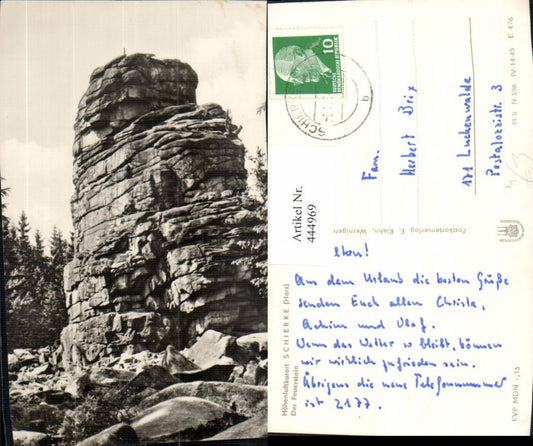 10
DEUTSCHE
DEMOKRATISCHE REPUBLIK
SCHIERKE
b
Fam.
Herbert Brix
171 Luckenwalde
Postalozzistr. 3
91 b N 3/66 IV-14-45 E 476
Postkartenverlag E. Riehn, Wernigen
EVP MDN -,15
Höhenluftkurort SCHIERKE (Harz)
Der Feuerstein
Artikel Nr.
444969
Aus dem Urlaub die besten Grüße
senden Euch allen Christa,
Achim und Olaf.
Wenn das Wetter so bleibt, können
wir wirklich zufrieden sein.
Übrigens die neue Telefonnummer
ist 2177.